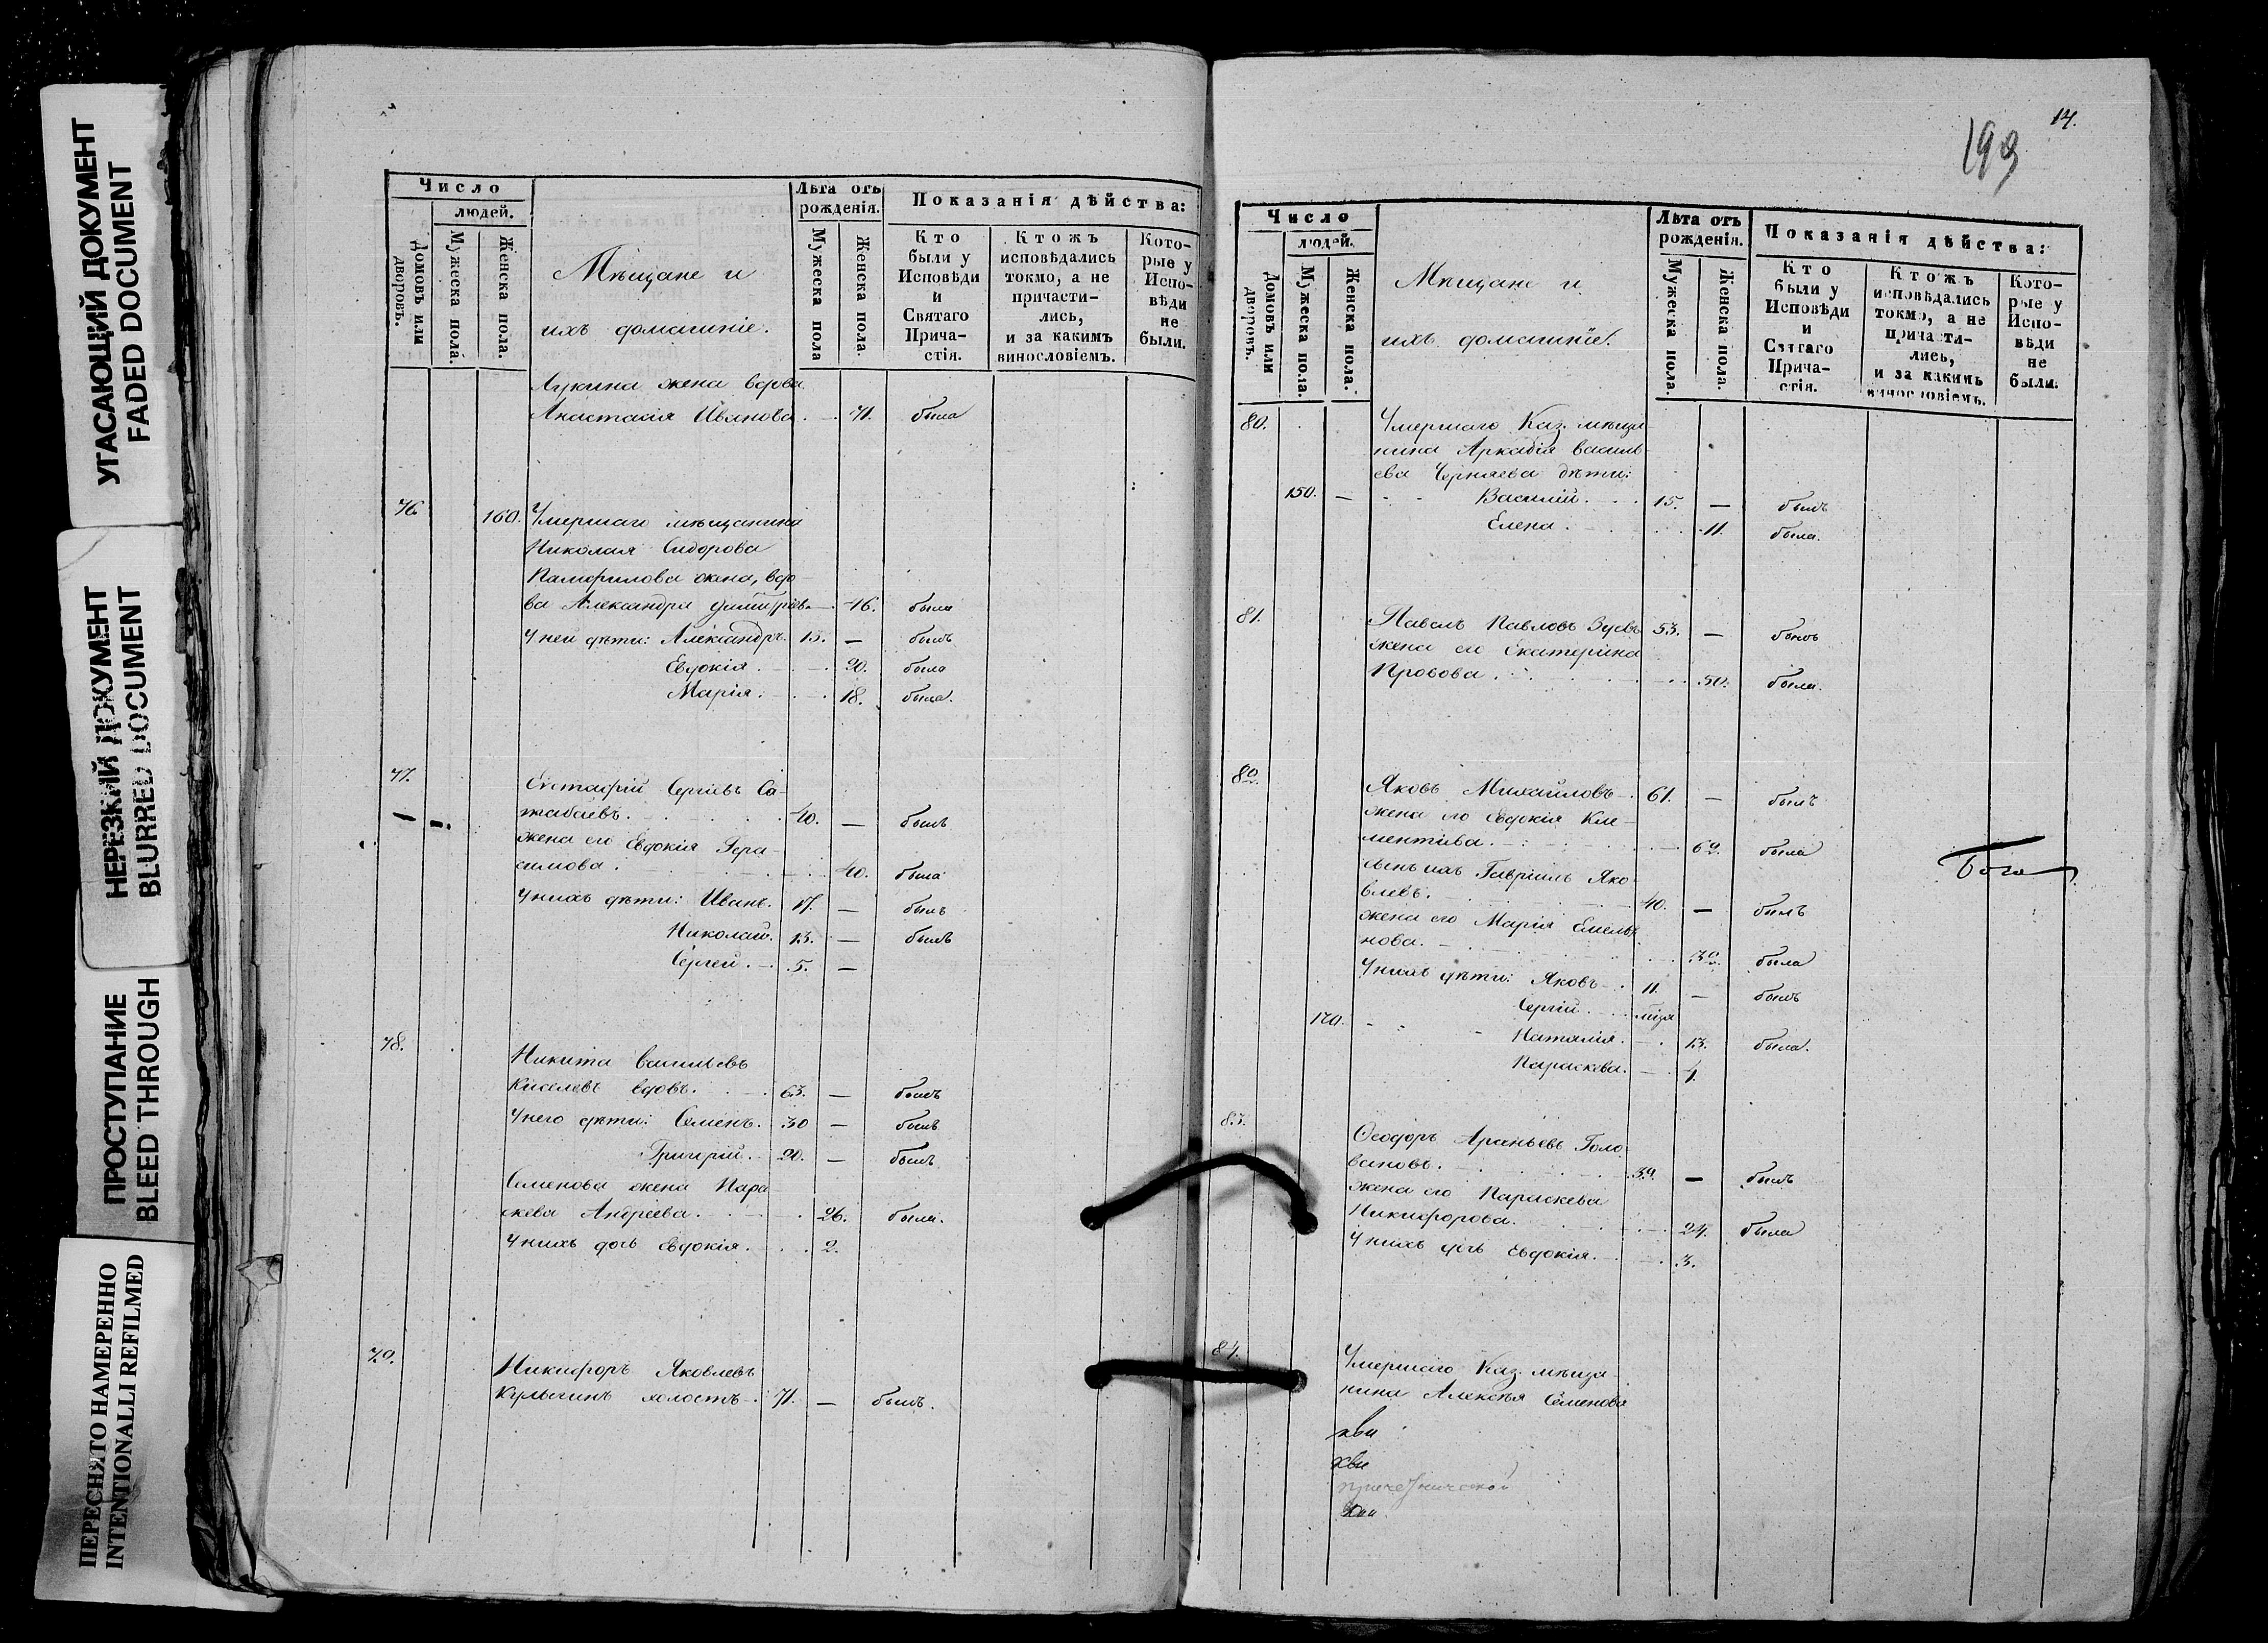 УГАСАЮЩИЙ ДОКУМЕНТ
FADED DOCUMENT
НЕРЕЗКИЙ ДОКУМЕНТ
BLURRED DOCUMENT
ПРОСТУПАНИЕ
BLEED THROUGH
ПЕРЕСНЯТО НАМЕРЕННО
INTENTIONALLI REFILMED
Число
людей.
Домовъ или дворовъ.
Мужеска пола.
Женска пола.
Мѣщане и
ихъ домашніе.
Лѣта отъ рожденія.
Мужеска пола
Женска пола.
Показанія дѣйства:
Кто были у Исповѣди и Святаго Прича-стія.
Ктожъ исповѣдались токмо, а не причасти-лись, и за какимъ винословіемъ.
Кото-рые у Испо-вѣди не были.
Лукина жена вдова
Анастасія Иванова. — 71. была
76. 160. Умершаго мѣщанина
Николая Сидорова
Памфилова жена, вдо-
ва Александра Димитріев. — 46. была
У ней дѣти: Александръ. 15. — былъ
Евдокія. — 20. была
Марія. — 18. была.
77. Евстафій Сергѣевъ
40. — былъ
жена его Евдокія Гера-
симова. — 40. была
У нихъ дѣти: Иванъ. 17. — былъ
Николай. 13. — былъ
Сергей. 5. —
78. Никита Васильевъ
Киселевъ вдовъ. 63. — былъ
У него дѣти: Семенъ. 30 — былъ
Григорій. 20. — былъ
Семенова жена Пара-
скева Андреева. 26. была.
У нихъ дочь Евдокія. 2.
79. Никифоръ Яковлевъ
Кулыгинъ холостъ. 71. — былъ.
14.
199
Число
людей.
Домовъ или дворовъ.
Мужеска пола.
Женска пола.
Мѣщане и
ихъ домашніе.
Лѣта отъ рожденія.
Мужеска пола.
Женска пола.
Показанія дѣйства:
Кто были у Исповѣди и Святаго Прича-стія.
Ктожъ исповѣдались токмо, а не причасти-лись, и за какимъ винословіемъ.
Кото-рые у Испо-вѣди не были.
80. Умершаго Каз. мѣща-
нина Аркадія Василь-
ева Черняева дѣти:
150. — Василій. 15. — былъ
Елена. 11. была.
81. Павелъ Павловъ Зуевъ 53. — былъ
жена его Екатерина
Провова. 50. была.
82. Яковъ Михайловъ 61. — былъ
жена его Евдокія Кле-
ментіева. — 62. была
сынъ ихъ Гавріилъ Яко-
влевъ. 40. — былъ
жена его Марія Емелья-
нова. 32. была
У нихъ дѣти: Яковъ 11. — былъ
Сергій.
170. Наталія. 13. была.
Параскева. — 4.
83. Ѳеодоръ Голо-
вановъ. 39. — былъ
жена его Параскева
Никифорова. 24. была
У нихъ дочь Евдокія. 3.
84. Умершаго Каз. мѣща-
нина Алексѣя Семенова